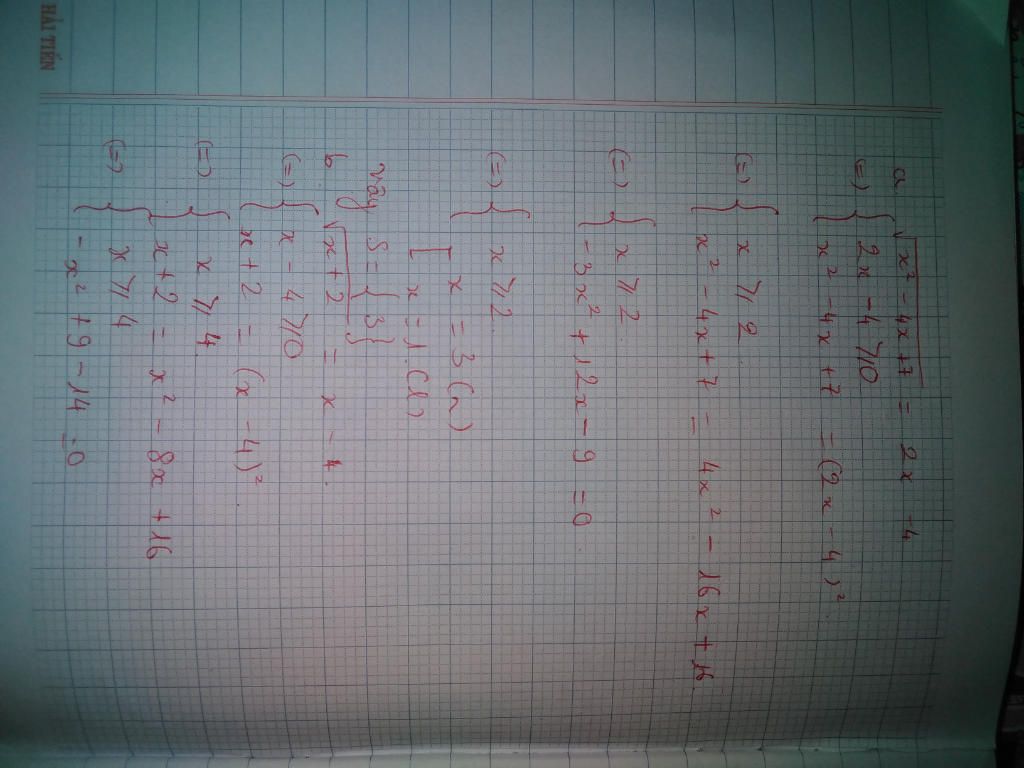 HẢI TIẾN
a √(x² - 4x + 7) = 2x - 4
(=) { 2x - 4 ⩾ 0
x² - 4x + 7 = (2x - 4)²
(=) { x ⩾ 2
x² - 4x + 7 = 4x² - 16x + 16
(=) { x ⩾ 2
-3x² + 12x - 9 = 0
(=) { x ⩾ 2
[ x = 3 (n)
x = 1 (l)
vậy S = { 3 }
b √(x + 2) = x - 4
(=) { x - 4 ⩾ 0
x + 2 = (x - 4)²
(=) { x ⩾ 4
x + 2 = x² - 8x + 16
(=) { x ⩾ 4
- x² + 9 - 14 = 0